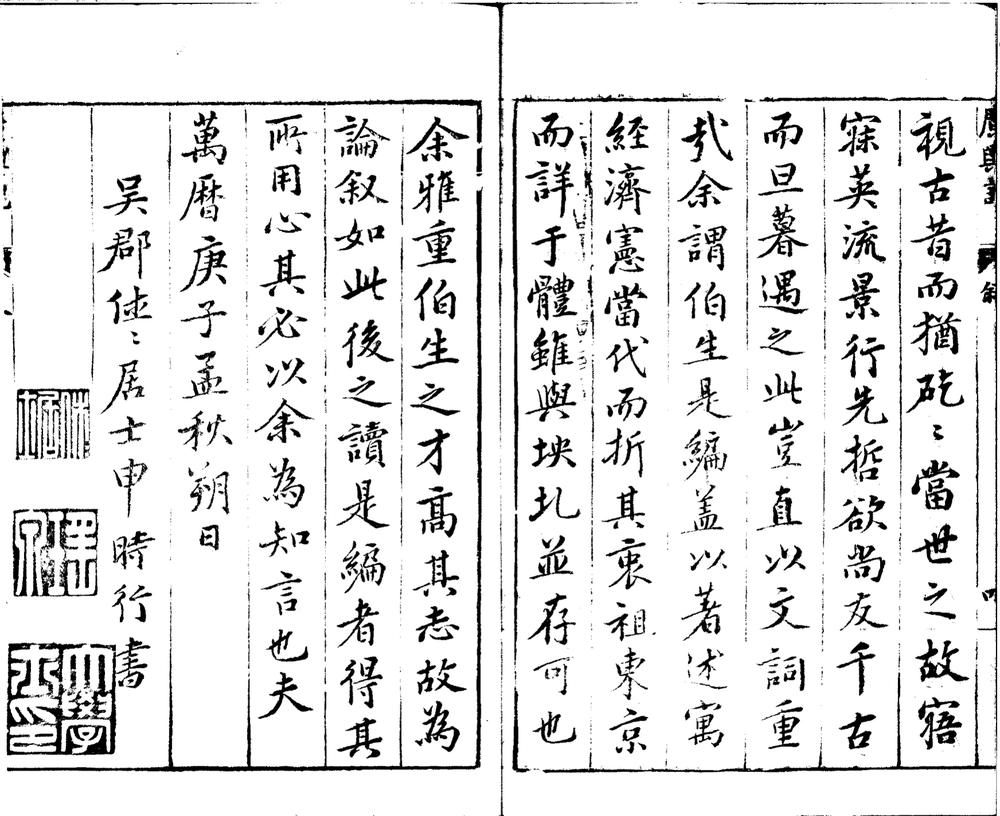 廣輿記
敘
視古昔而猶矻〻當世之故寤
寐英流景行先哲欲尚友千古
而旦暮遇之此豈直以文詞重
㢤余謂伯生是編盖以著述寓
經濟憲當代而折其衷祖東京
而詳于體雖與坱圠並存可也
余雅重伯生之才高其志故為
論叙如此後之讀是編者得其
所用心其必以余為知言也夫
萬曆庚子孟秋朔日
吳郡休〻居士申時行書
大學士印